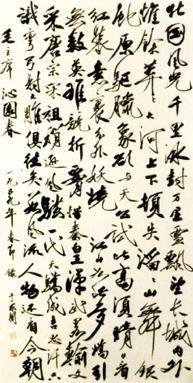 北国风光千里冰封万里雪飘望长城内外
惟余莽々大河上下顿失滔々山舞银
蛇原驰腊象欲与天公试比高须晴日看
红装素裹分外妖娆江山如此多娇引
无数英雄竞折腰惜秦皇汉武略输文
采唐宗宋祖稍逊风骚一代天骄成吉思汗只
识弯弓射大雕俱往矣数风流人物还看今朝
毛主席 沁园春 一九九九年春节 录